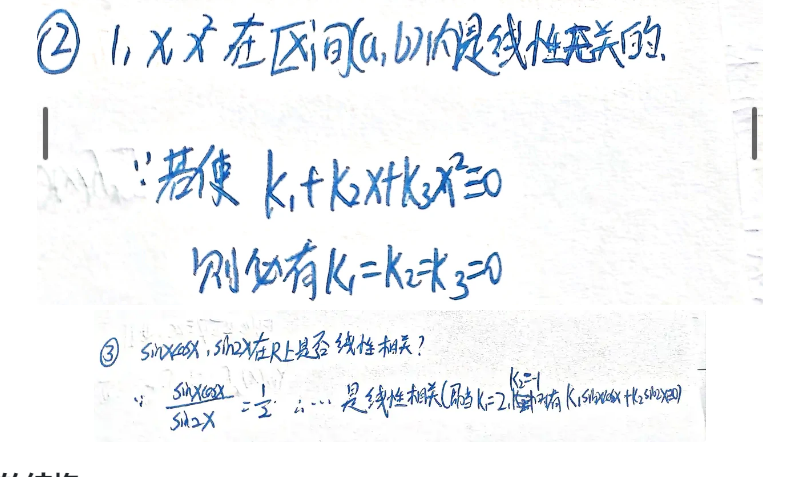 ② 1, x, x² 在区间(a,b)内是线性无关的.
∵若使 k₁+k₂x+k₃x²≡0
则必有k₁=k₂=k₃=0
③ sinxcosx, sin2x在R上是否线性相关?
∵ sinxcosx/sin2x = 1/2 ∴… 是线性相关(即当k₁=2, k₂=-1 时有 k₁sinxcosx+k₂sin2x≡0)